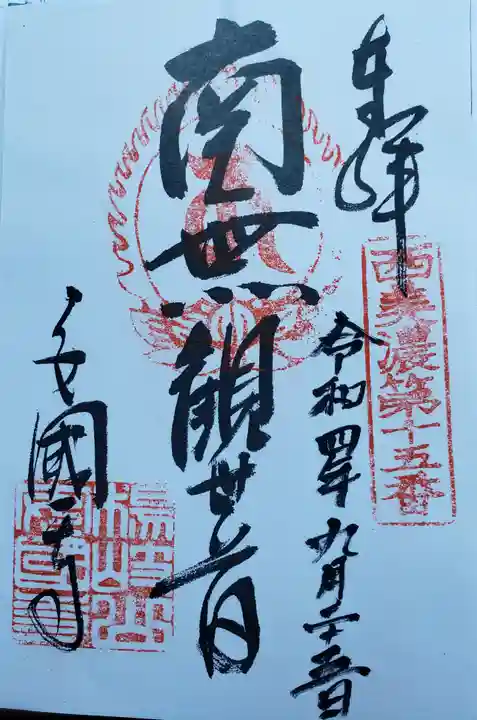 奉拝
西美濃第十五番
令和四年九月二十五日
南無観世音
安國寺